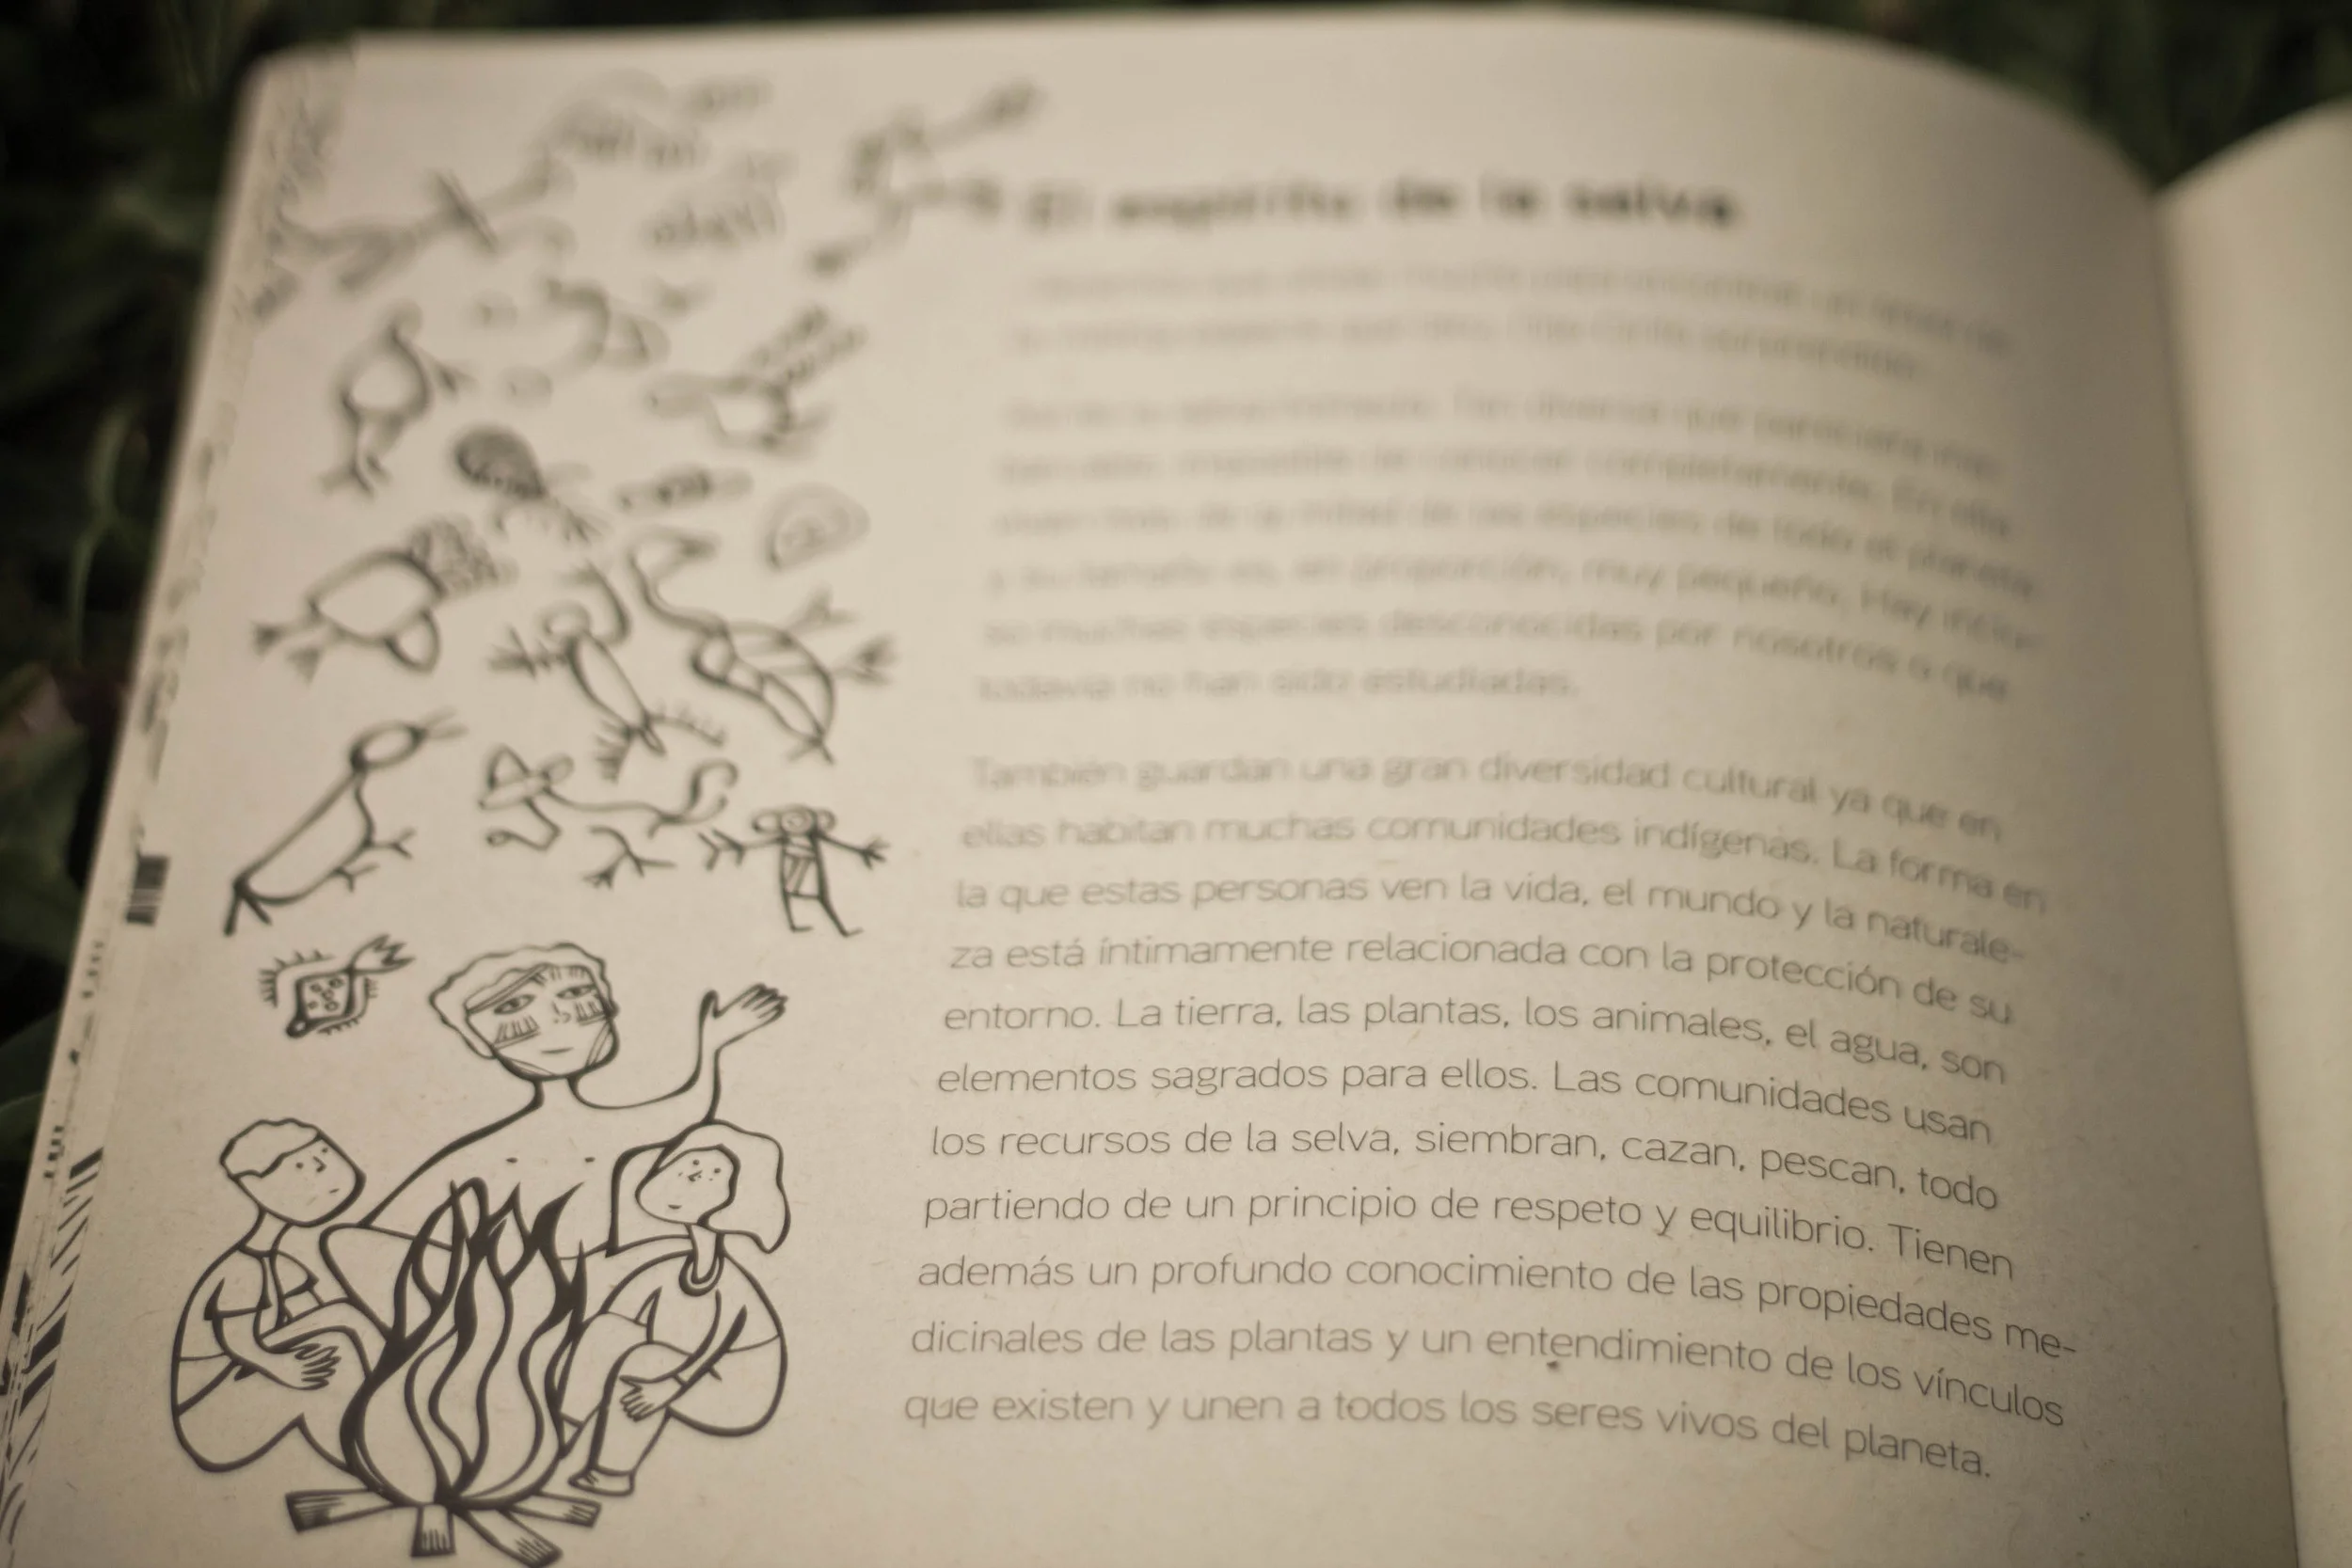 El espíritu de la selva
impposible de conocer completamente. En ella
viven más de la mitad de las especies de todo el planeta
y su tamaño es, en proporción, muy pequeño. Hay inclu-
so muchas especies desconocidas por nosotros o que
todavía no han sido estudiadas.
También guardan una gran diversidad cultural ya que en
ellas habitan muchas comunidades indígenas. La forma en
la que estas personas ven la vida, el mundo y la naturale-
za está íntimamente relacionada con la protección de su
entorno. La tierra, las plantas, los animales, el agua, son
elementos sagrados para ellos. Las comunidades usan
los recursos de la selva, siembran, cazan, pescan, todo
partiendo de un principio de respeto y equilibrio. Tienen
además un profundo conocimiento de las propiedades me-
dicinales de las plantas y un entendimiento de los vínculos
que existen y unen a todos los seres vivos del planeta.